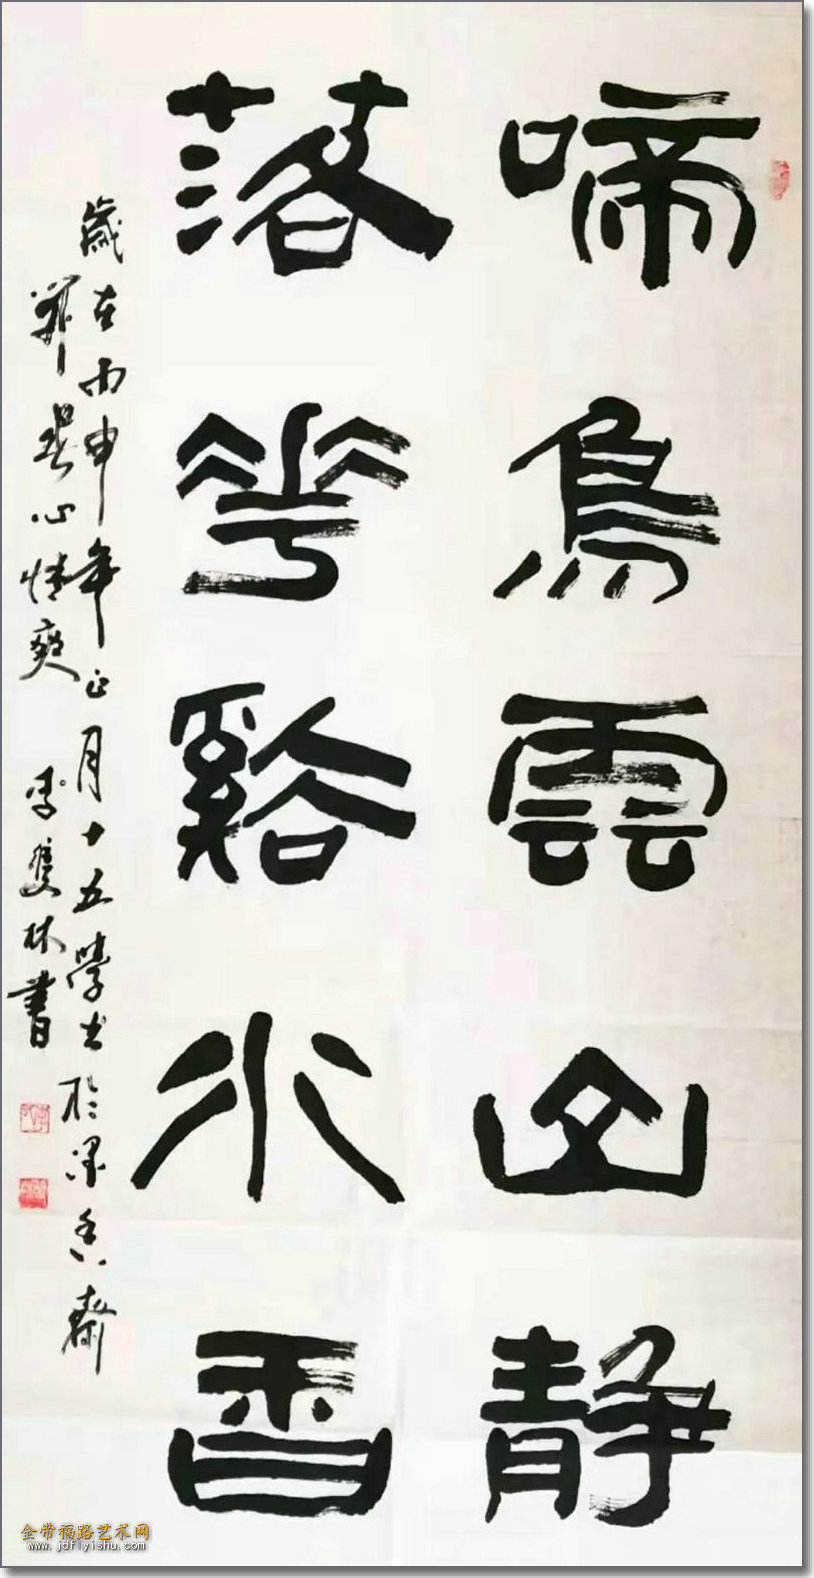 啼鳥雲山静
落華谿水香
歲在丙申年正月十五學书於香齋
心情爽 李雙林書
金带福路艺术网
www.jdflyishu.com